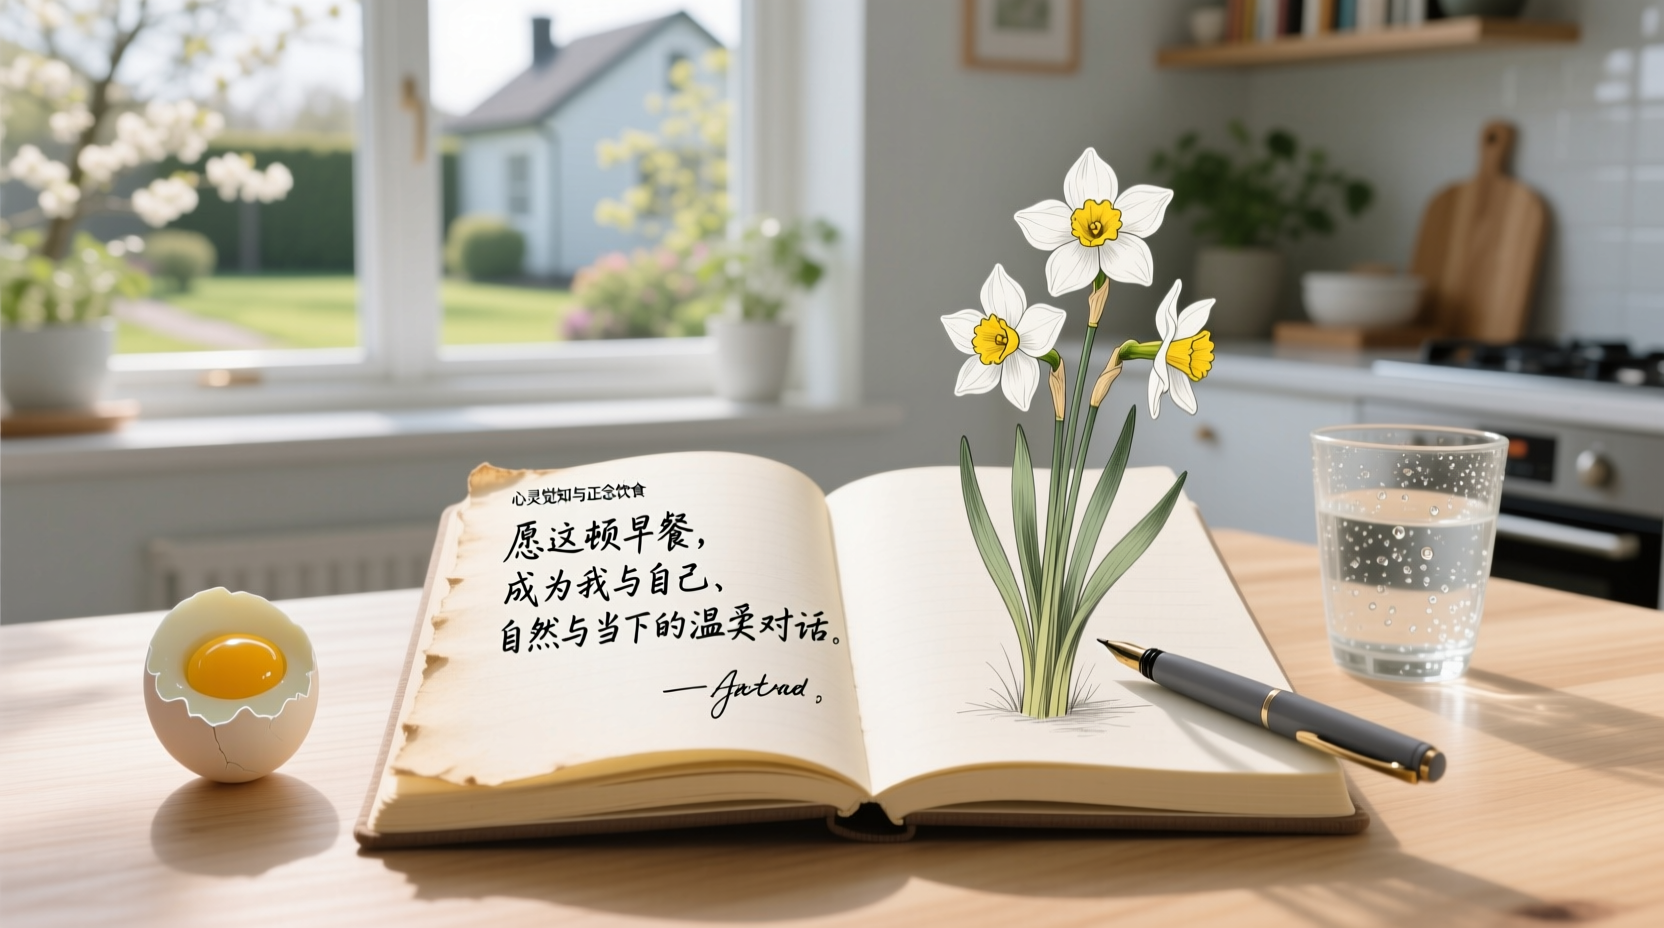 心灵觉知与正念饮食
愿这顿早餐，
成为我与自己、
自然与当下的温柔对话。